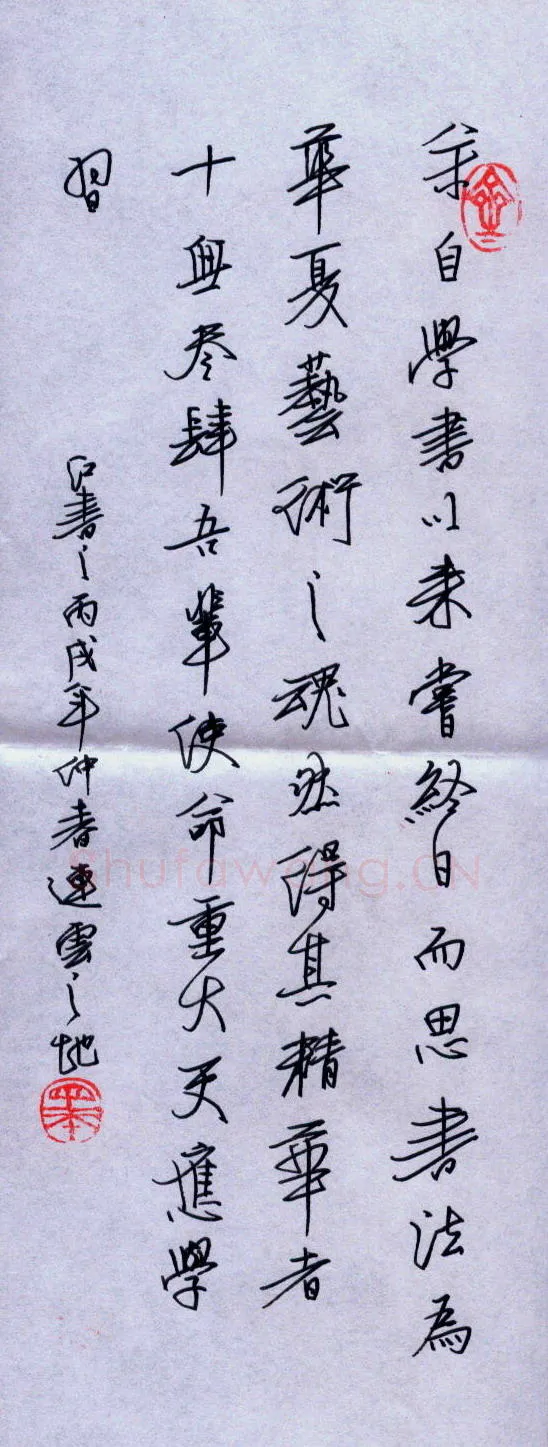 余自學書以来嘗終日而思書法為
華夏藝術之魂然得其精華者
十無叁肆吾輩使命重大更應學
習
江書之丙戌年仲春連雲之地
Shufawang.CN